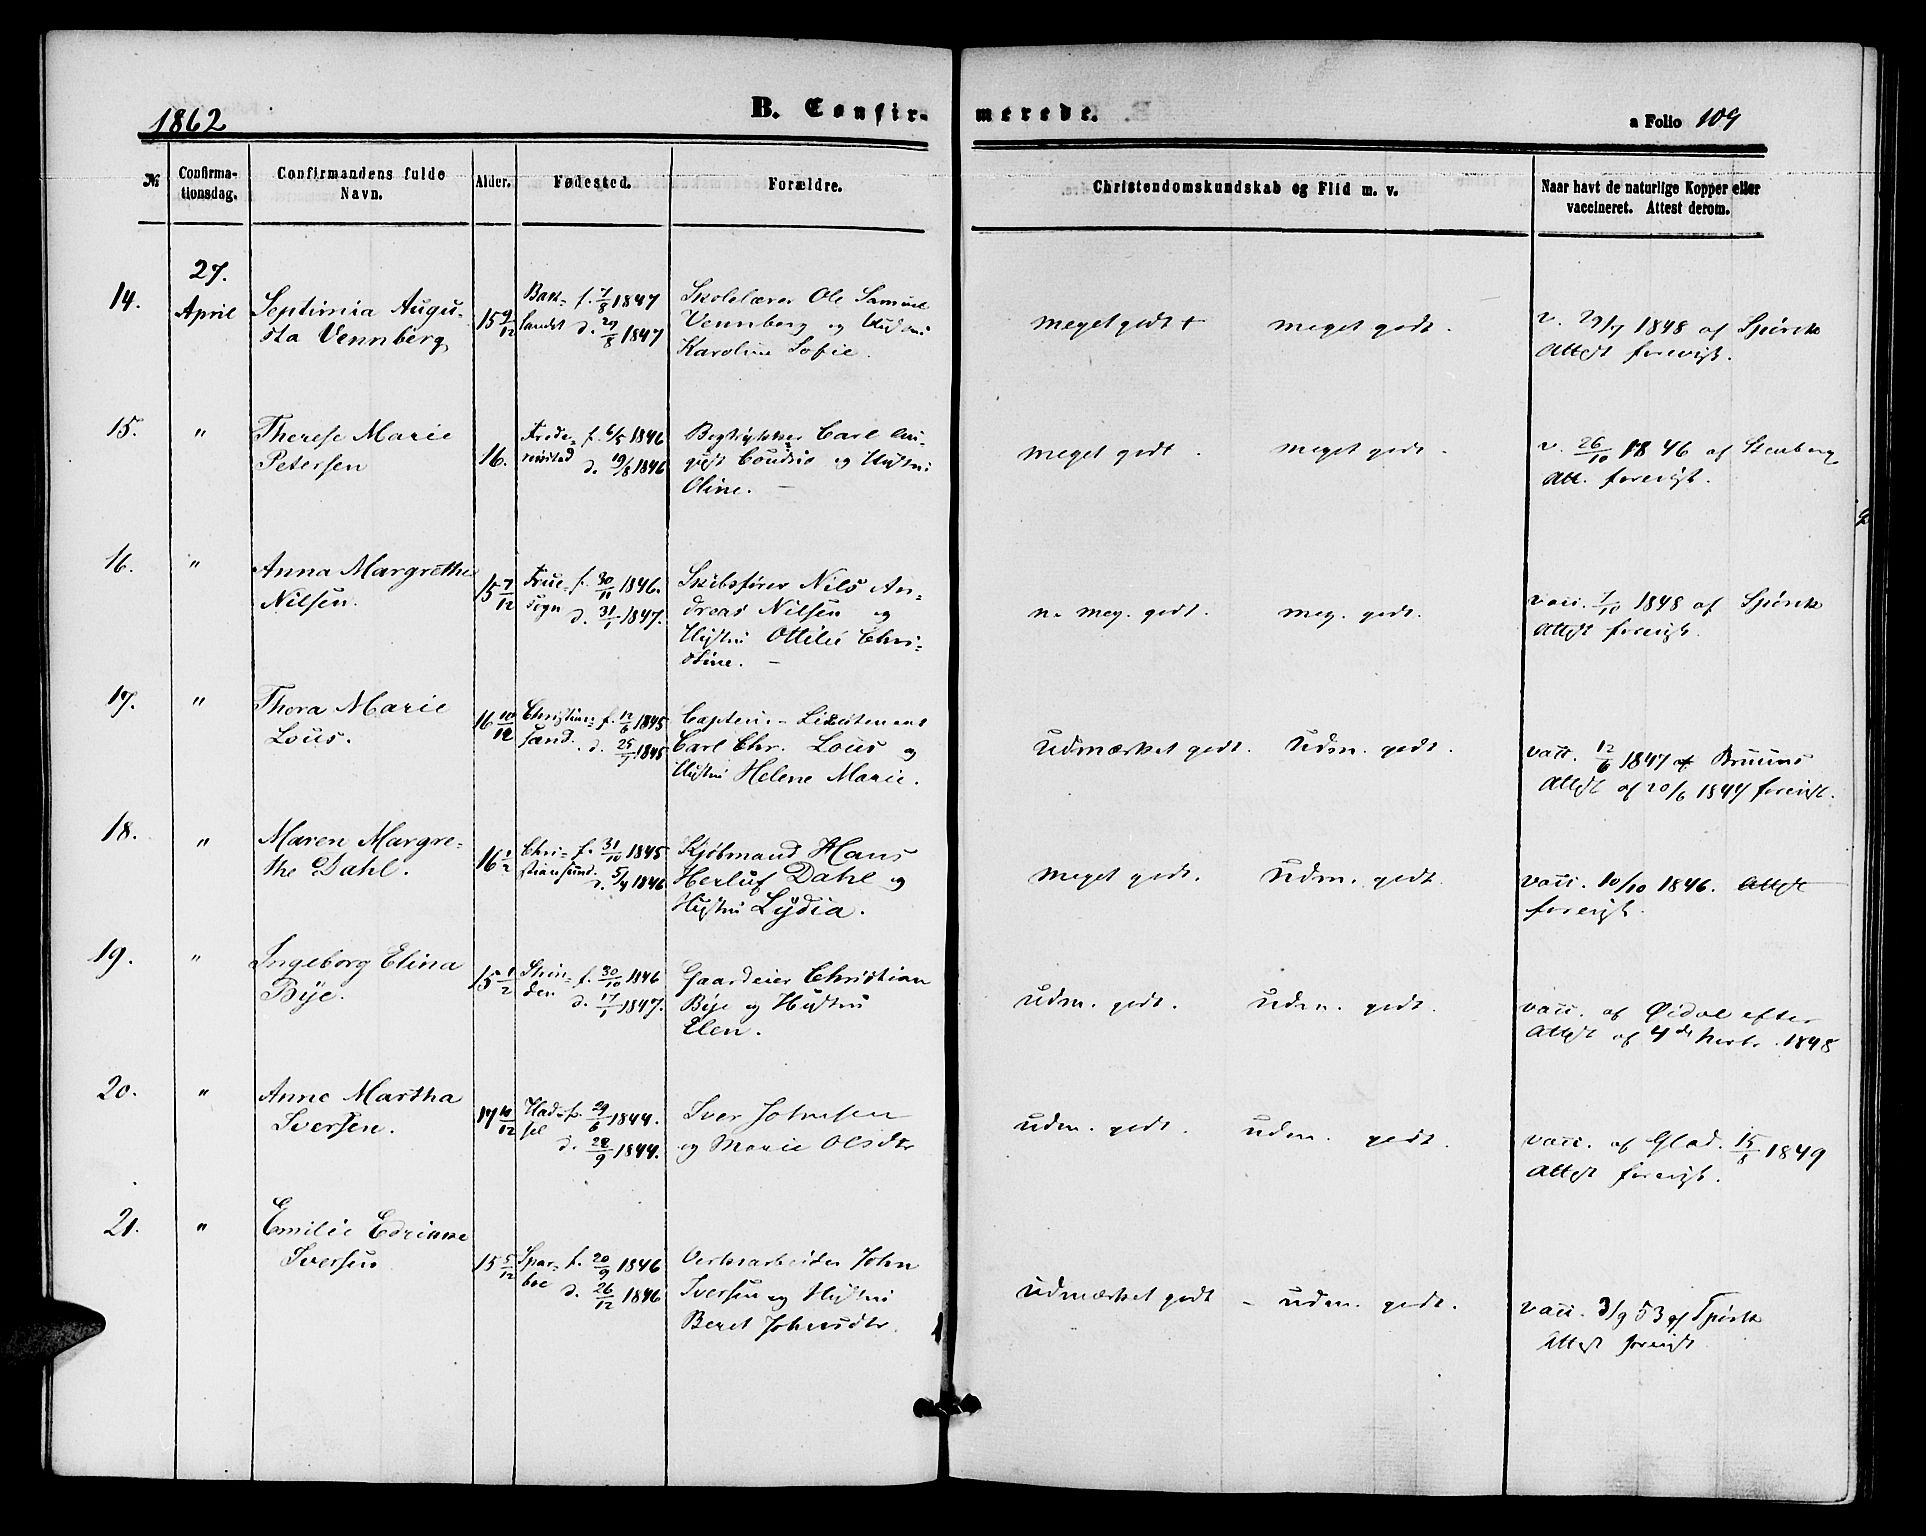 1862
B. Confir-
merede.
a Folio 109
№
Confirma-
tionsdag.
Confirmandens fulde
Navn.
Alder.
Fødested.
Forældre.
Christendomskundskab og Flid m. v.
Naar havt de naturlige Kopper eller
vaccineret. Attest derom.
14.
27.
April
Septimia Augu-
sta Vennberg
15 9/12
Bak- f. 7/8 1847
landet d. 29/8 1847
Skolelærer Ole Samuel
Vennberg og Hustru
Karoline Sofie.
meget godt +
meget godt.
v. 1848 af Spörck
Attest forevist.
15.
"
Therese Marie
Petersen
16.
Frede- f. 6/5 1846
rikstad d. 19/8 1846
Carl Au-
gust og Hustru
Oline. —
meget godt.
meget godt.
v. 26/10 1846 af Stenberg
Att. forevist.
16.
"
Anna Margrethe
Nilsen.
15 7/12
Frue- f. 30/11 1846.
sogn d. 31/1 1847.
Skibsfører Nils An-
dreas Nilsen og
Hustru Ottilie Chri-
stine. —
n. meg. godt.
meg. godt.
vacc. 7/10 1848 af Spörck
Attest forevist.
17.
"
Thora Marie
Lous.
16 10/12
Christian- f. 12/6 1845
sand. d. 25/7 1845
Captein-Lieutenant
Carl Chr. Lous og
Hustru Helene Marie.
Udmærket godt.
Udm. godt.
vacc. 12/6 1847 af Bruuns
Attest af 20/6 1847 forevist.
18.
"
Maren Margre-
the Dahl.
16 1/2
Chri- f. 31/10 1845
stiansund. d. 5/4 1846
Kjöbmand Hans
Herluf Dahl og
Hustru Lydia.
meget godt.
Udm. godt.
vacc. 10/10 1846. Attest
forevist.
19.
"
Ingeborg Elina
Bye.
15 1/2
Strin- f. 30/10 1846
den d. 17/1 1847.
Gaardeier Christian
Bye og Hustru
Elen.
udm. godt.
udm. godt.
vacc. af efter
Attest af 4de 1848
20.
"
Anne Martha
Iversen.
17 10/12
Had- f. 29/6 1844.
sel d. 22/9 1844.
Iver Johnsen
og Marie Olsdtr
udm. godt.
udm. godt.
vacc. af Glad. 15/8 1849
Attest forevist.
21.
"
Emilie Edriane
Iversen
15 5/12
Spar- f. 20/9 1846
boe d. 26/12 1846
John
Iversen og Hustru
Beret Johnsdtr.
udmærket godt –
udm. godt.
vacc. 3/9 53 af Spörck
Attest forevist